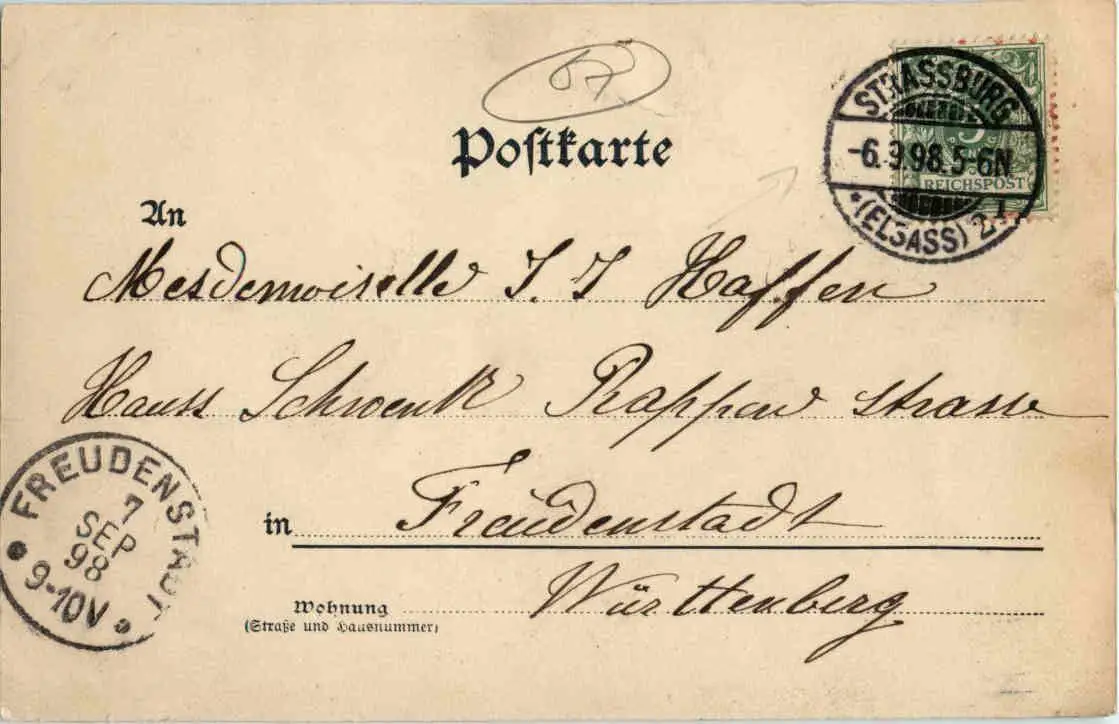 57
Postkarte
STRASSBURG
-6.9.98.5-6N
*(ELSASS) 2
5
REICHSPOST
An
Mesdemoiselle J. J Haffen
Hauss Schwenk Rappen strasse
FREUDENSTADT
7
SEP
98
9-10V
in Freudenstadt
Württenberg
Wohnung
(Straße und Hausnummer)